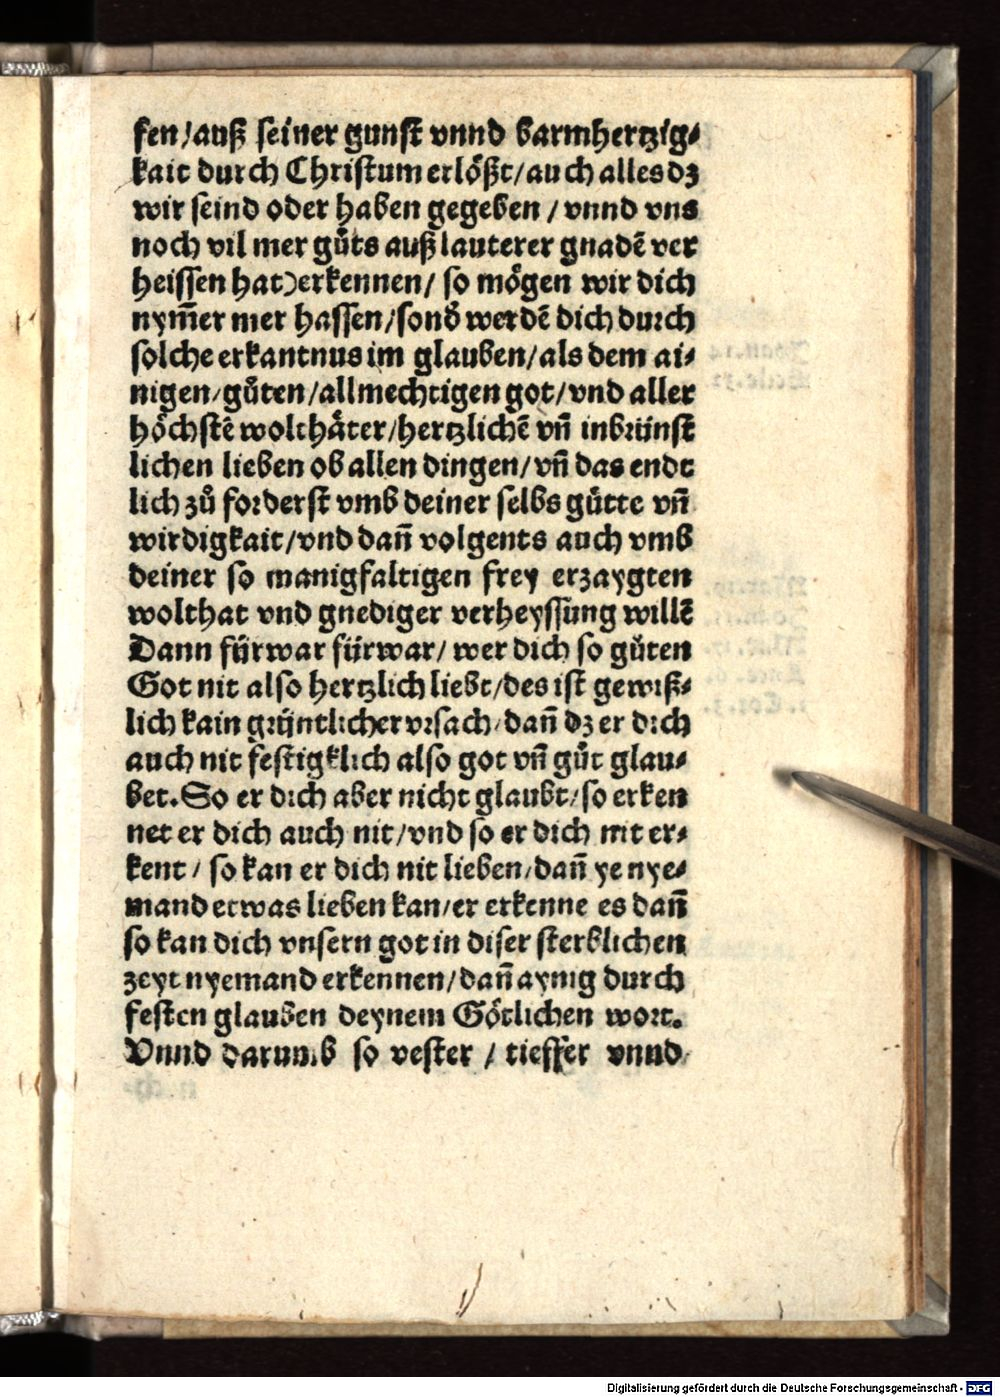 fen/auß seiner gunst vnnd barmhertzig⸗
kait durch Christum erlößt/auch alles dz
wir seind oder haben gegeben / vnnd vns
noch vil mer gůts auß lauterer gnadē ver
heissen hat)erkennen/ so mögen wir dich
nym̄er mer hassen/sond̕ werdē dich durch
solche erkantnus im glauben/als dem ai⸗
nigen/gůten/allmechtigen got/vnd aller
höchstē wolthäter/hertzlichē vn̄ inbrünst
lichen lieben ob allen dingen/vn̄ das endt
lich zů forderst vmb deiner selbs gůtte vn̄
wirdigkait/vnd dan̄ volgents auch vmb
deiner so manigfaltigen frey erzaygten
wolthat vnd gnediger verheyssung willē
Dann fürwar fürwar/ wer dich so gůten
Got nit also hertzlich liebt/des ist gewiß⸗
lich kain grüntlicher vrsach/dan̄ dz er dich
auch nit festigklich also got vn̄ gůt glau⸗
bet. So er dich aber nicht glaubt/so erken
net er dich auch nit/vnd so er dich nit er⸗
kent / so kan er dich nit lieben/dan̄ ye nye⸗
mand etwas lieben kan/er erkenne es dan̄
so kan dich vnsern got in diser sterblichen
zeyt nyemand erkennen/dan̄ aynig durch
festen glauben deynem Götlichen wort.
Vnnd darumb so vester / tieffer vnnd
Digitalisierung gefördert durch die Deutsche Forschungsgemeinschaft - DFG